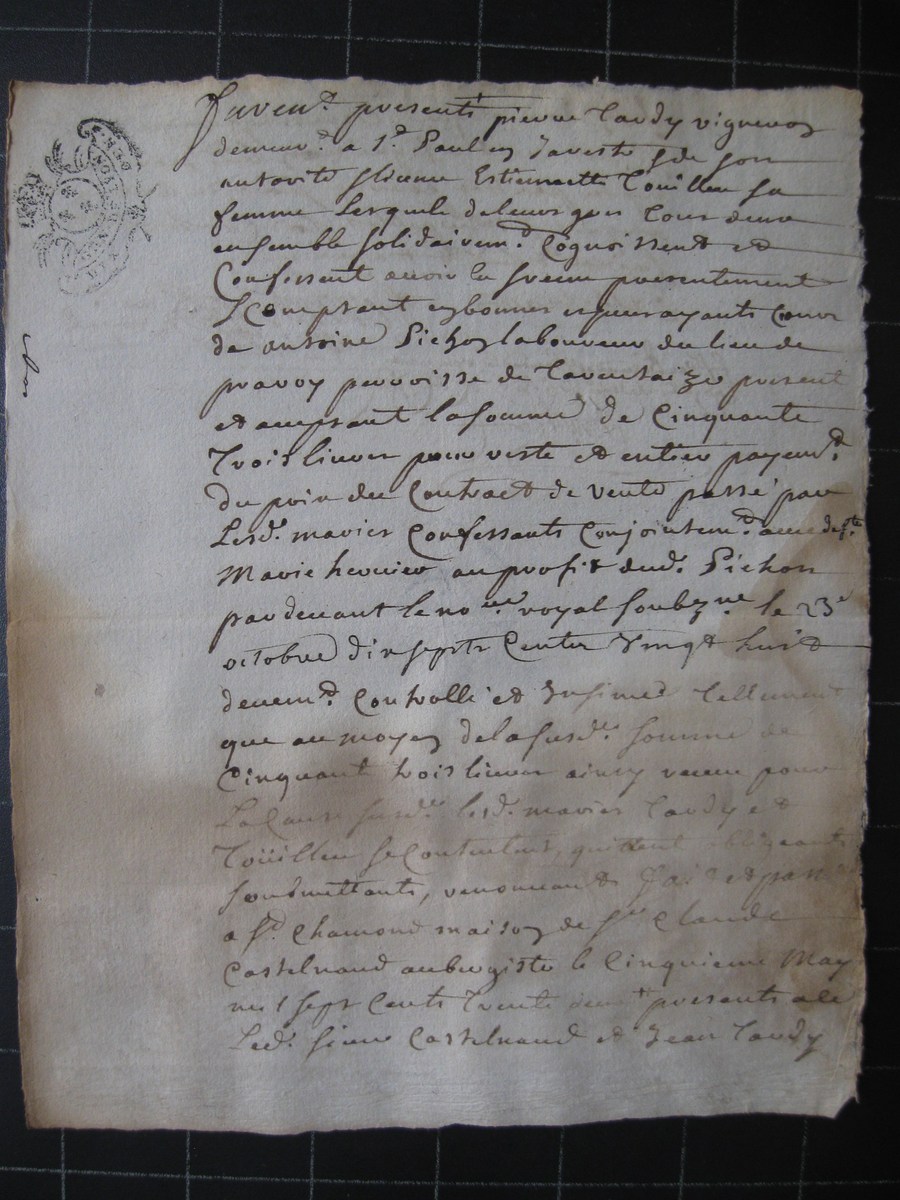 Furent presents pierre Tardy vigneron
demeur.t a S.t Paul en Jarests & de son
autorité Estiennette Toüilleu sa
femme Lesquels de leurs grez tous deux
ensemble solidairem.t Cognoissent et
Confessent avoir eu & receu presentement
& Comptant en bonnes especes ayants cours
de antoine Pichon laboureur du lieu de
pravoy parroisse de Tarentaize present
et acceptant la somme de Cinquante
Trois livres pour reste et entier payem.t
du prix du Contract de vente passé par
Lesd. mariez Confessants Conjointem.t avec
Marie au profit dud. Pichon
pardevant le no.re royal soubz.né le 23.e
octobre dix sept Cents Vingt huit
deuem.t Controllé et Insinué Tellement
que au moyen de la susd.e somme de
Cinquante trois livres ainsy receue pour
La Cause susd.e lesd. mariez Tardy et
Toüilleu se Contentent, quittent obligeants
soubmettants, renonceants fait et passé
a S.t Chamond maison de S.r Claude
Castelnaud aubergiste le Cinquieme May
mil sept Cents Trente deux presents a ce
Led. sieur Castelnaud et Jean Tardy